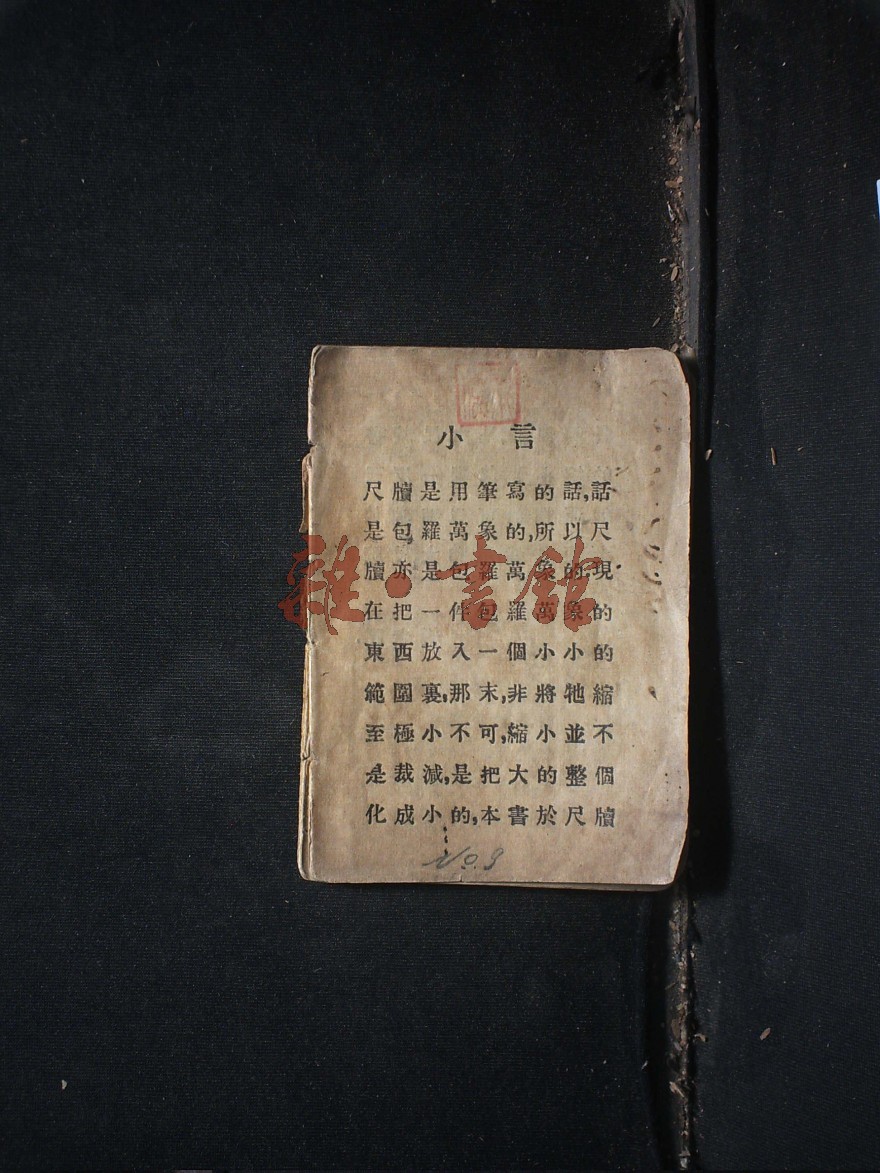 小言
尺牘是用筆寫的話,話
是包羅萬象的,所以尺
牘亦是包羅萬象的,現
在把一件包羅萬象的
東西放入一個小小的
範圍裏,那末,非將牠縮
至極小不可,縮小並不
是裁減,是把大的整個
化成小的,本書於尺牘
No.9
雜·書館